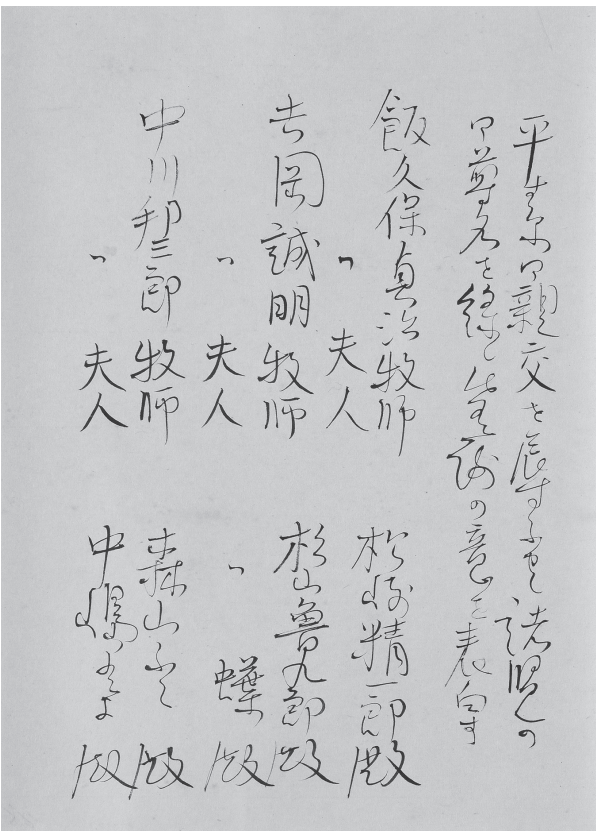 平素御親交を辱ふせし諸賢の
御尊名を録し感謝の意を表白す
飯久保貞治牧師
〃 夫人
吉岡誠明牧師
〃 夫人
中川邦三郎牧師
〃 夫人
松崎精一郎殿
杉山魯九郎殿
〃 蝶殿
森山 殿
中嶋 殿